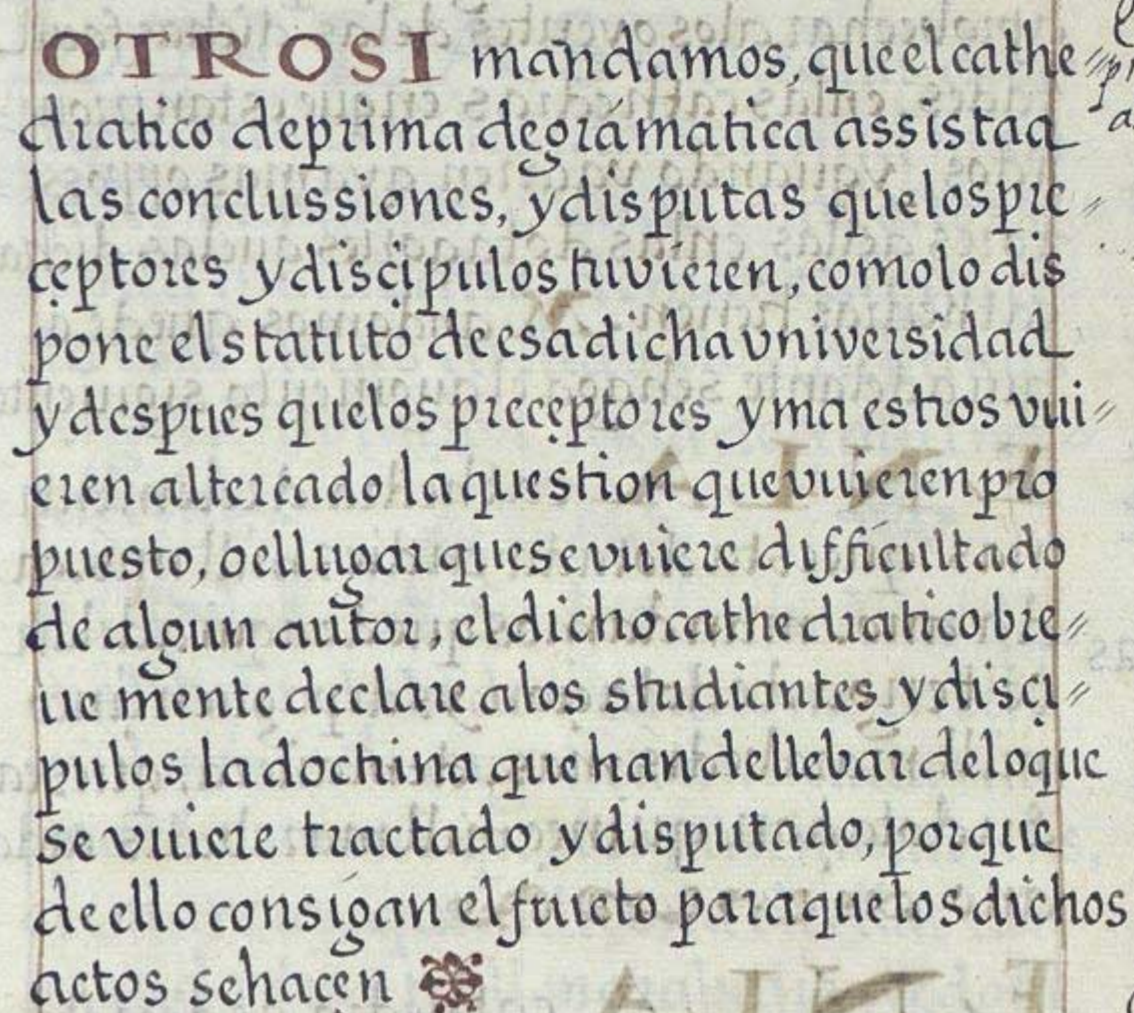 OTROSI mandamos, que el cathe//
dratico de prima de grámatica assista a
las conclussiones, y disputas que los pre//
çeptores y disçipulos tuvieren, como lo dis
pone el statuto de esa dicha vniversidad
y despues que los preçeptores y maestros vui//
eren altercado la question que vuieren pro
puesto, o el lugar que se vuiere difficultado
de algun autor, el dicho cathedratico bre//
ue mente declare a los studiantes y disçi//
pulos la doctrina que han de llebar de lo que
se vuiere tractado y disputado, porque
de ello consigan el fructo para que los dichos
actos se hacen